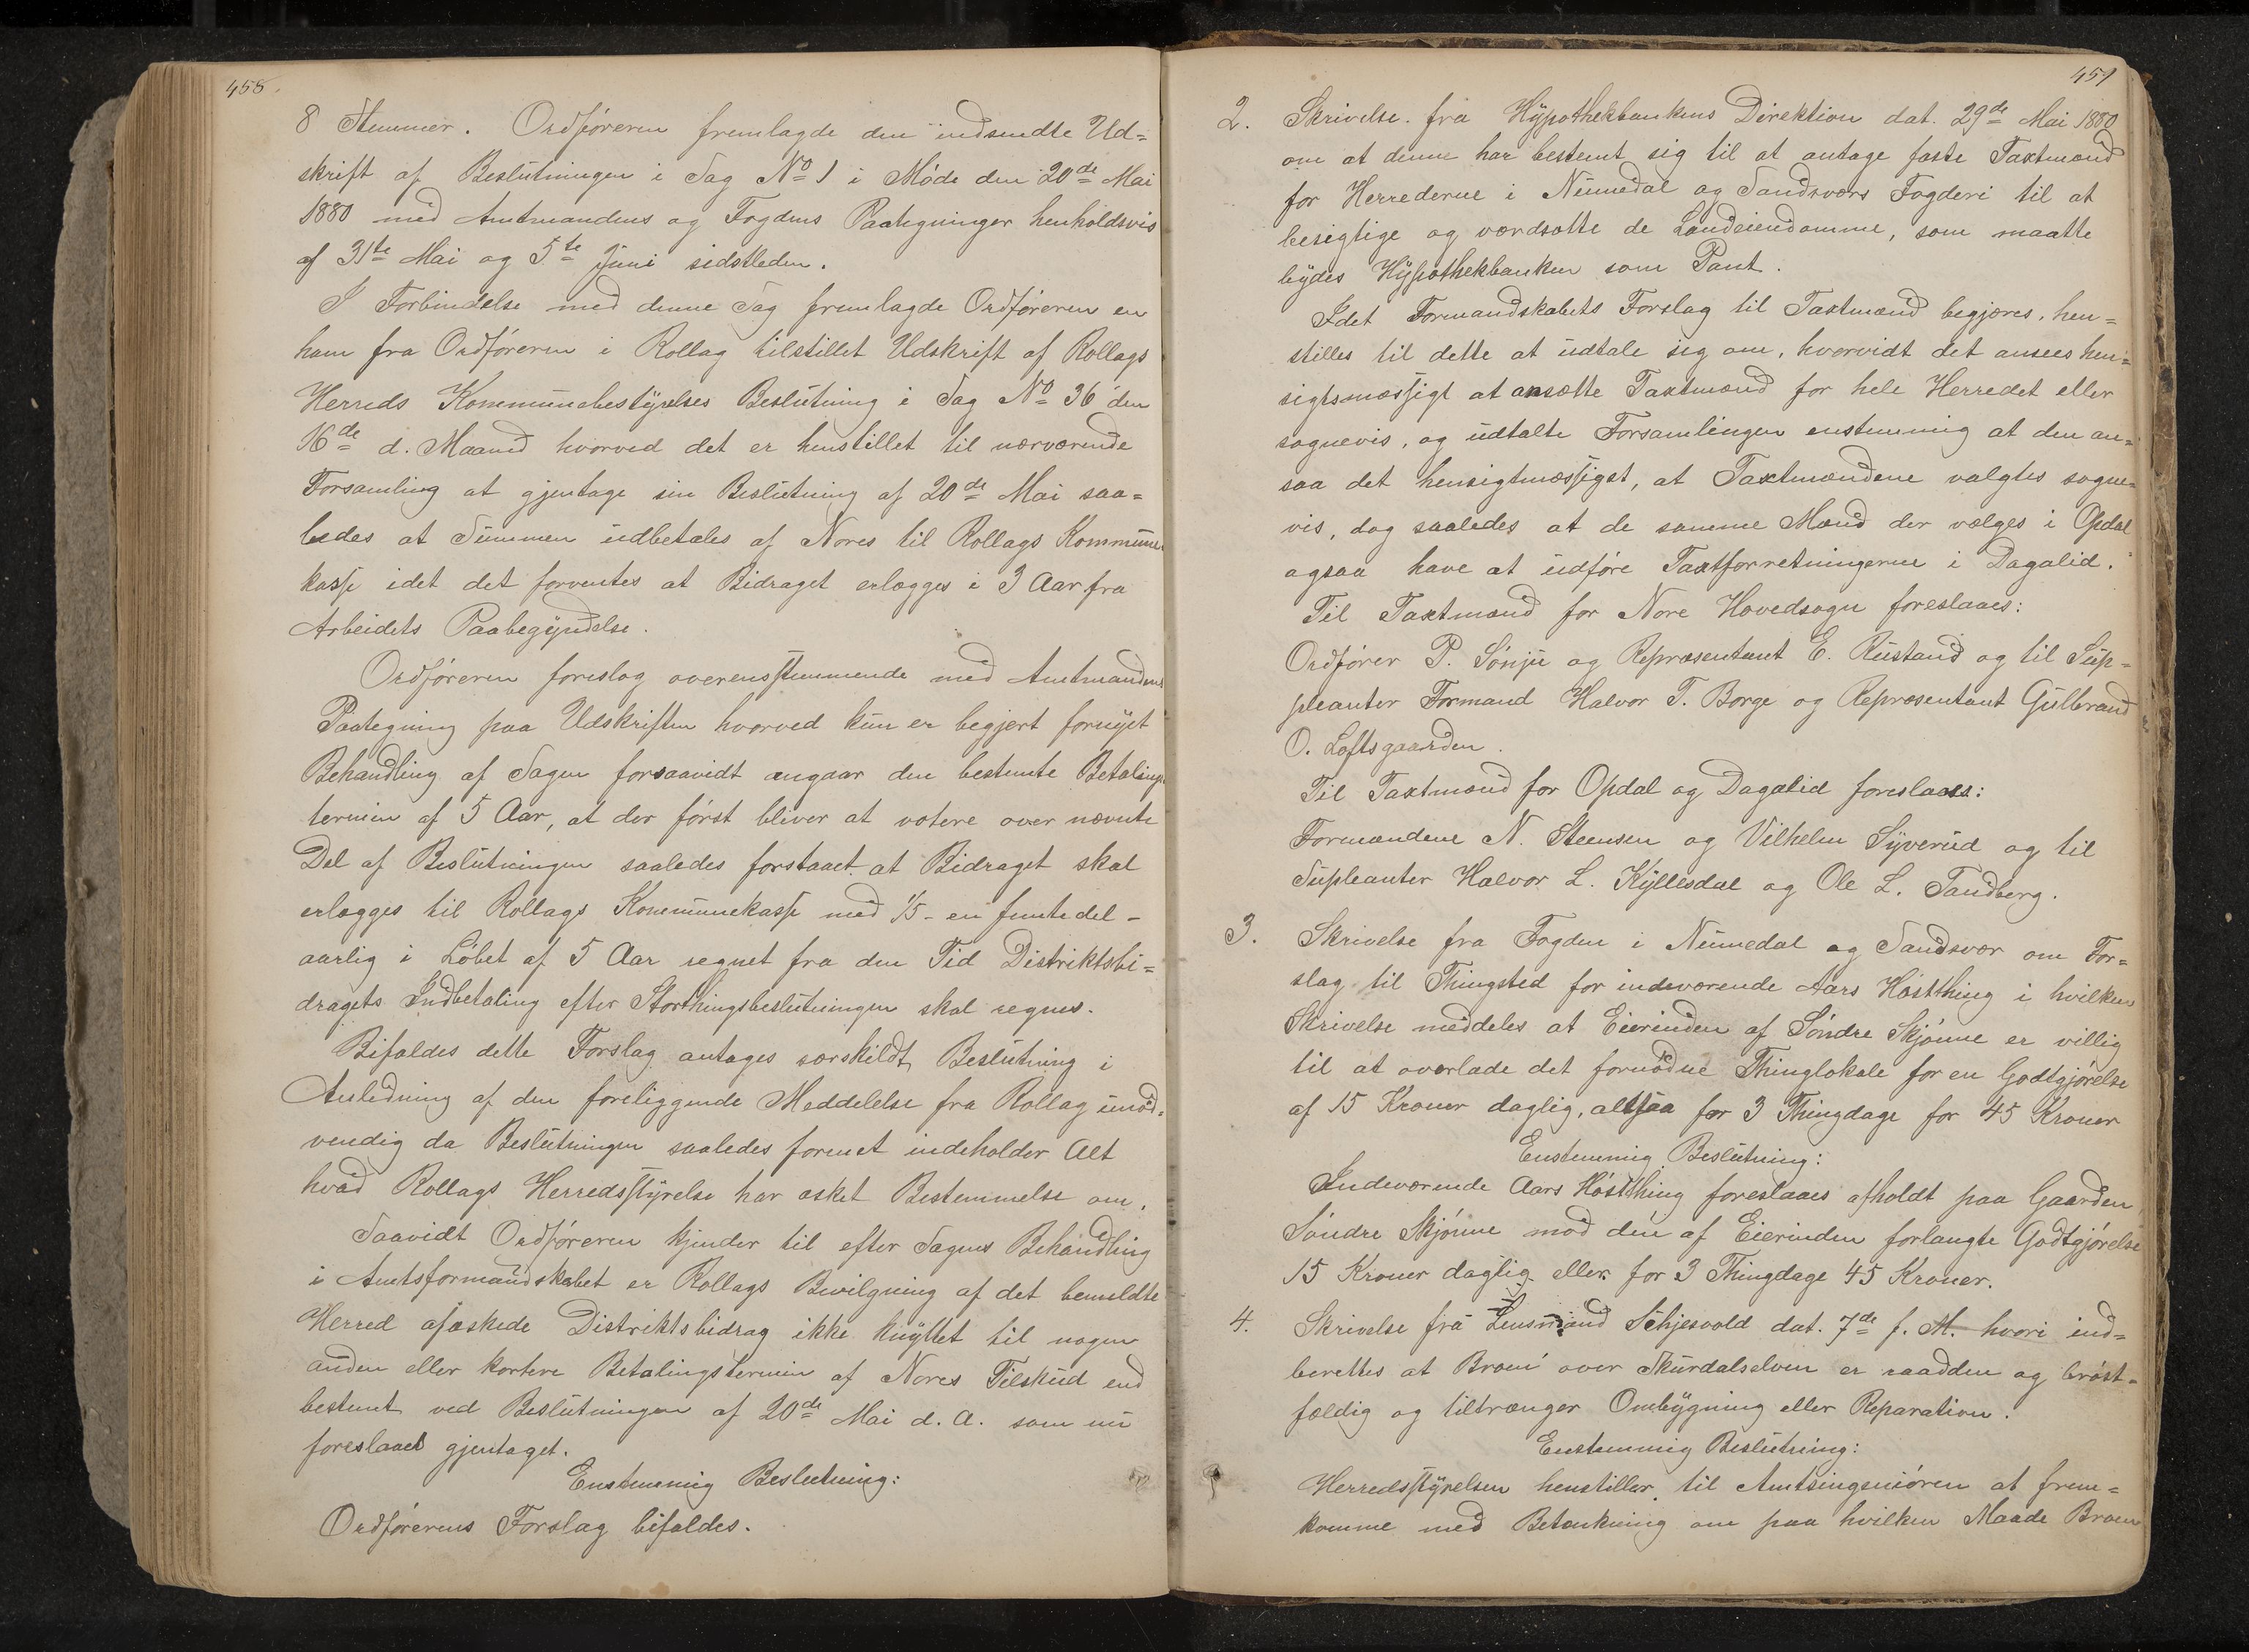 458.
8 Stemmer. Ordføreren fremlagde den indsendte Ud=
skrift af Beslutningen i Sag No 1 i Møde den 20de Mai
1880 med Amtmandens og Fogdens Paategninger henholdsvis
af 31te Mai og 5te Juni sidstleden.
I Forbindelse med denne Sag fremlagde Ordføreren en
ham fra Ordføreren i Rollag tilstillet Udskrift af Rollags
Herreds Kommunebestyrelses Beslutning i Sag No 36 den
16de d. Maaned hvorved det er henstillet til nærværende
Forsamling at gjentage sin Beslutning af 20de Mai saa=
ledes at Summen udbetales af Nores til Rollags Kommune
kasse idet det forventes at Bidraget erlægges i 3 Aar fra
Arbeidets Paabegyndelse.
Ordføreren foreslog overensstemmende med Amtmandens
Paategning paa Udskriften hvorved kun er begjert fornyet
Behandling af Sagen forsaavidt angaar den bestemte Betalings
termin af 5 Aar, at der først bliver at votere over nævnte
Del af Beslutningen saaledes forstaaet at Bidraget skal
erlægges til Rollags Kommunekasse med 1/5 - en femtedel -
aarlig i Løbet af 5 Aar regnet fra den Tid Distriktsbi=
dragets Indbetaling efter Storthingsbeslutningen skal regnes.
Bifaldes dette Forslag antages særskildt Beslutning i
Anledning af den foreliggende Meddelelse fra Rollag unød=
vendig da Beslutningen saaledes formet indeholder Alt
hvad Rollags Herredsstyrelse har æsket Bestemmelse om.
Saavidt Ordføreren kjender til efter Sagens Behandling
i Amtsformandskabet er Rollags Bevilgning af det bemeldte
Herred afæskede Distriktsbidrag ikke knyttet til nogen
anden eller kortere Betalingstermin af Nores Tilskud end
bestemt ved Beslutningen af 20de Mai d. A. som nu
foreslaaet gjentaget.
Enstemmig Beslutning:
Ordførerens Forslag bifaldes.
459
2. Skrivelse fra Hypothekbankens Direktion dat. 29de Mai 1880
om at denne har bestemt sig til at antage faste Taxtmænd
for Herrederne i Numedal og Sandsværs Fogderi til at
besigtige og værdsætte de Landeiendomme, som maatte
bydes Hypothekbanken som Pant.
Idet Formandskabets Forslag til Taxtmænd begjæres, hen=
stilles til dette at udtale sig om, hvorvidt det ansees hen=
sigtsmæssigt at ansætte Taxtmænd for hele Herredet eller
sognevis, og udtalte Forsamlingen enstemmig at den an=
saa det hensigtmæssigst, at Taxtmændene valgtes sogne=
vis, dog saaledes at de samme Mænd der vælges i Opdal
ogsaa have at udføre Taxtforretningerne i Dagalid.
Til Taxtmænd for Nore Hovedsogn foreslaaes:
Ordfører P. Sønju og Repræsentant E. Rustand og til Sup=
pleanter Formand Halvor T. Borge og Repræsentant Gulbrand
O. Loftsgaarden.
Til Taxtmænd for Opdal og Dagalid foreslaaes:
Formændene N. Steensen og Vilhelm Syverud og til
Supleanter Halvor L. Kyllesdal og Ole L. Tandberg.
3. Skrivelse fra Fogden i Numedal og Sandsvær om For=
slag til Thingsted for indeværende Aars Høstthing i hvilken
Skrivelse meddeles at Eierinden af Søndre Skjønne er villig
til at overlade det fornødne Thinglokale for en Godtgjørelse
af 15 Kroner daglig, altsaa for 3 Thingdage for 45 Kroner
Enstemmig Beslutning:
Indeværende Aars Høstthing foreslaaes afholdt paa Gaarden
Søndre Skjønne mod den af Eierinden forlangte Godtgjørelse
15 Kroner daglig eller for 3 Thingdage 45 Kroner.
4. Skrivelse fra Lensmand Schjesvold dat. 7de f. M. hvori ind=
berettes at Broen over Skurdalselven er raadden og brøst=
fældig og tiltrænger Ombygning eller Reparation.
Enstemmig Beslutning:
Herredsstyrelsen henstiller til Amtsingeniøren at frem=
komme med Betænkning om paa hvilken Maade Broen